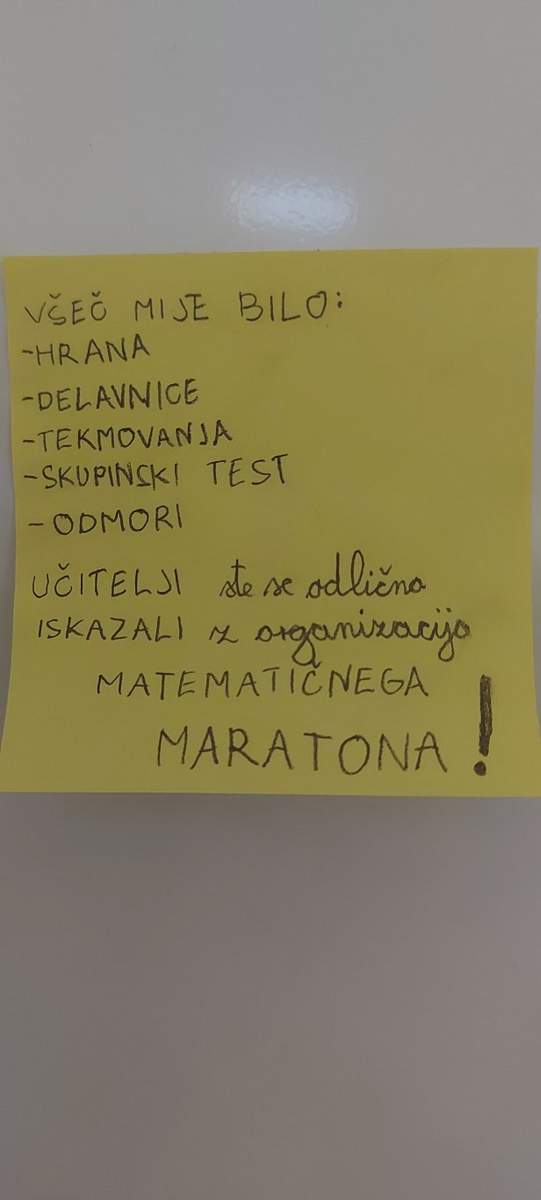 VŠEČ MI JE BILO:
-HRANA
-DELAVNICE
-TEKMOVANJA
-SKUPINSKI TEST
-ODMORI
UČITELJI ste se odlično
ISKAZALI z organizacijo
MATEMATIČNEGA
MARATONA!